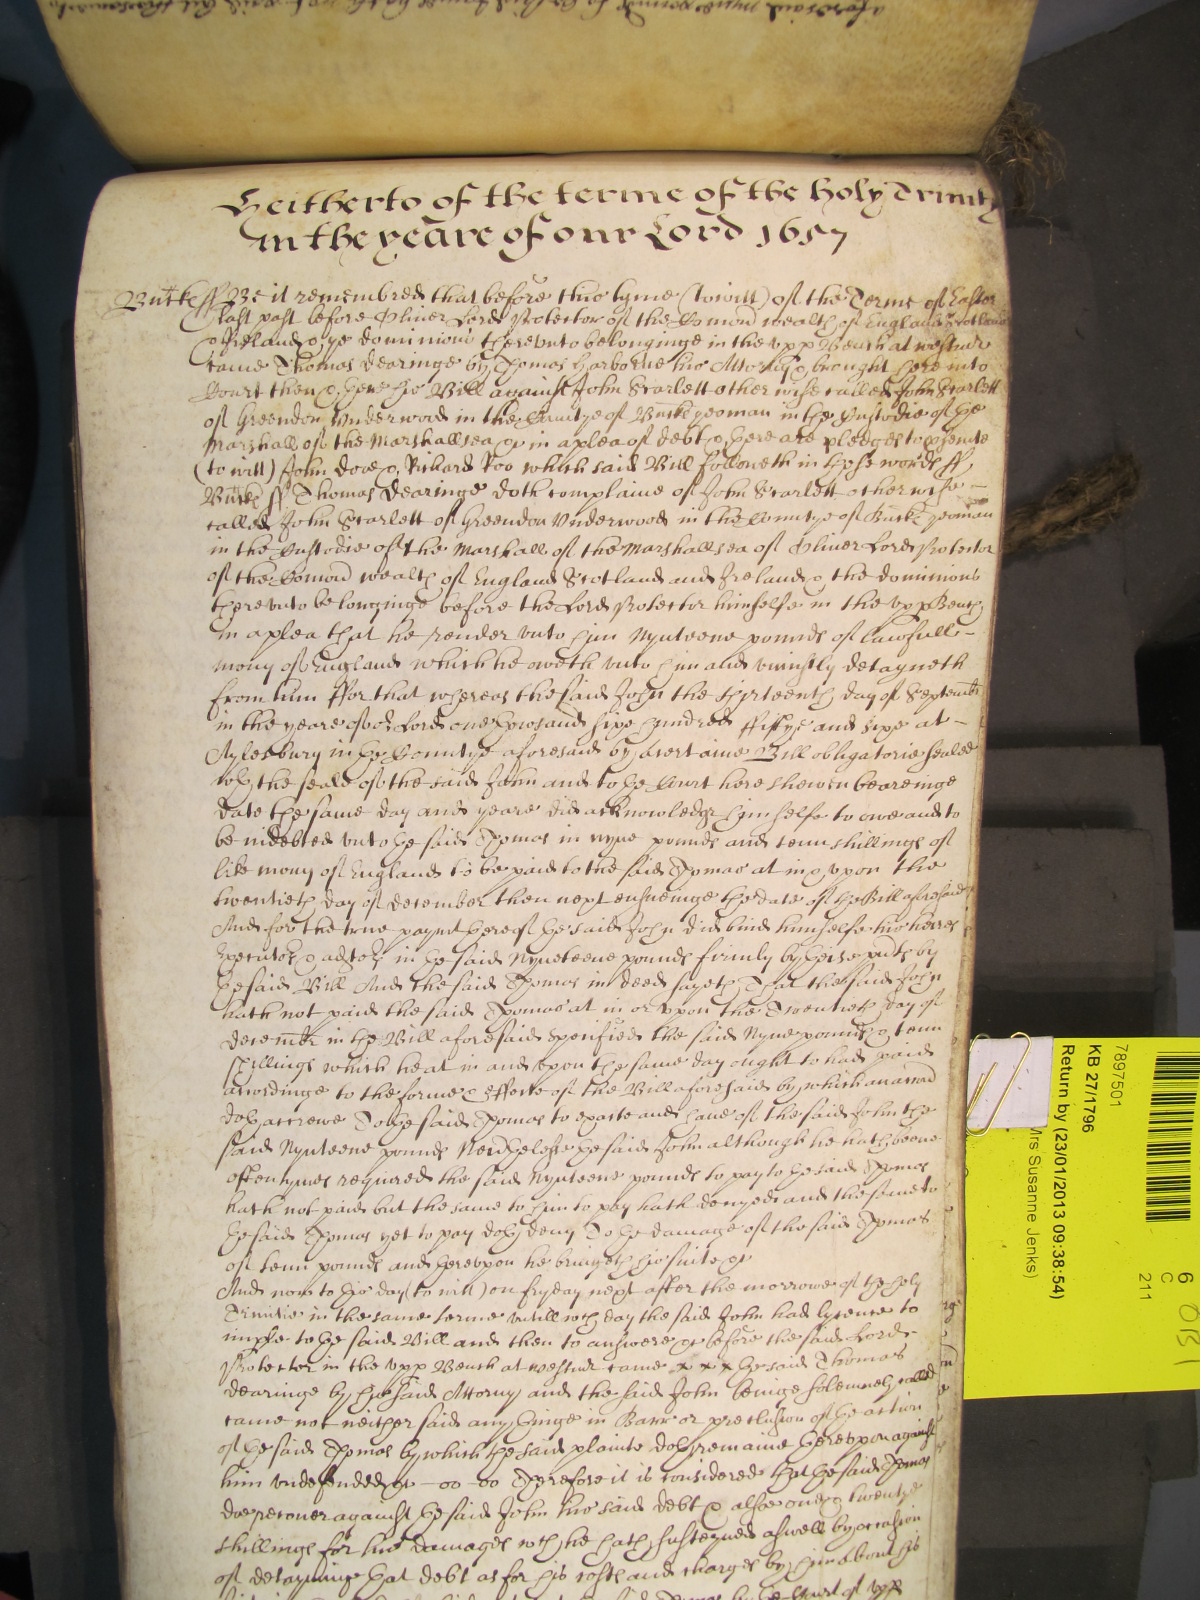 Heitherto of the terme of the holy Trinity
In the yeare of our Lord 1657
Buck ss Be it remembred that before this tyme (to witt) of the Terme of Easter
last past before Oliver Lord Protector of the Comon wealth of England Scotland
& Ireland & ye dominions therevnto belonginge in the vpp Bench at westmr
came Thomas dearinge by Thomas Harborne his Attorny & brought here into
Court then & there his Bill against John Scarlett otherwise called John Scarlett
of Greendon Vnderwood in the Countye of Buck yeoman in the Custodie of the
Marshall of the Marshallsea &c in a plea of debt & there are pledges to prosecute
(to witt) John doe & Richard Roo which said Bill followeth in these words ss
Buck ss Thomas dearinge doth complaine of John Scarlett otherwise
called John Scarlett of Greendon Vnderwood in the Countye of Buck yeoman
in the Custodie of the Marshall of the Marshallsea of Oliver Lord Protector
of the Comon wealth of England Scotland and Ireland & the dominions
therevnto belonginge before the Lord Protector himselfe in the vpp Bench
in a plea that he render vnto him Nynteene pounds of lawfull
mony of England which he oweth vnto him and vniustly detayneth
from him ffor that whereas the said John the thirteenth day of September
in the yeare of or Lord one thousand sixe hundred ffiftye and sixe at
Aylesbury in the Countye aforesaid by a certaine Bill obligatorie sealed
wth the seale of the said John and to the Court here shewen beareinge
date the same day and yeare did acknowledge himselfe to owe and to
be indebted vnto the said Thomas in nyne pounds and tenn shillings of
like mony of England to be paid to the said Thomas at in & vpon the
twentieth day of december then next ensueinge the date of the Bill aforesaid
And for the true paymt thereof the said John did bind himselfe his heires
Executors & admors in the said Nyneteene pounds firmly by theise prsents by
the said Bill And the said Thomas in deed sayeth That the said John
hath not paid the said Thomas at in or vpon the Twentieth day of
decembr in the Bill aforesaid specified the said Nyne pounds & tenn
shillings which he at in and vpon the same day ought to have paid
accordinge to the forme & effecte of the Bill aforesaid by which an accion
doth accrewe To the said Thomas to exacte and have of the said John the
said Nynteene pounds Neverthelesse the said John although he hath beene
often tymes required the said Nynteene pounds to pay to the said Thomas
hath not paid but the same to him to pay hath denyed and the same to
the said Thomas yet to pay doth deny To the damage of the said Thomas
of tenn pounds and therevpon he bringeth his suite &c
And now to this day (to witt) on fryday next after the morrowe of the holy
Trinitie in the same terme vntill wch day the said John had lycence to
imple to the said Bill and then to answere &c before the said Lord
Protector in the vpp Bench at westmr came x x x the said Thomas
dearinge by his said Attorny and the said John beinge solemnely called
came not neither said any thinge in Barr or preclusion of the action
of the said Thomas by which the said plainte doth remaine therevpon against
him vndefended &c Therefore it is considered that the said Thomas
doe recover against the said John his said debt & alsoe one & twentye
shillings for his damages wch he hath susteyned aswell by occasion
of detayninge that debt as for his costs and charges by him about his
7897501
KB 27/1796
Return by (23/01/2013 09:38:54)
Mrs Susanne Jenks)
6
C
211